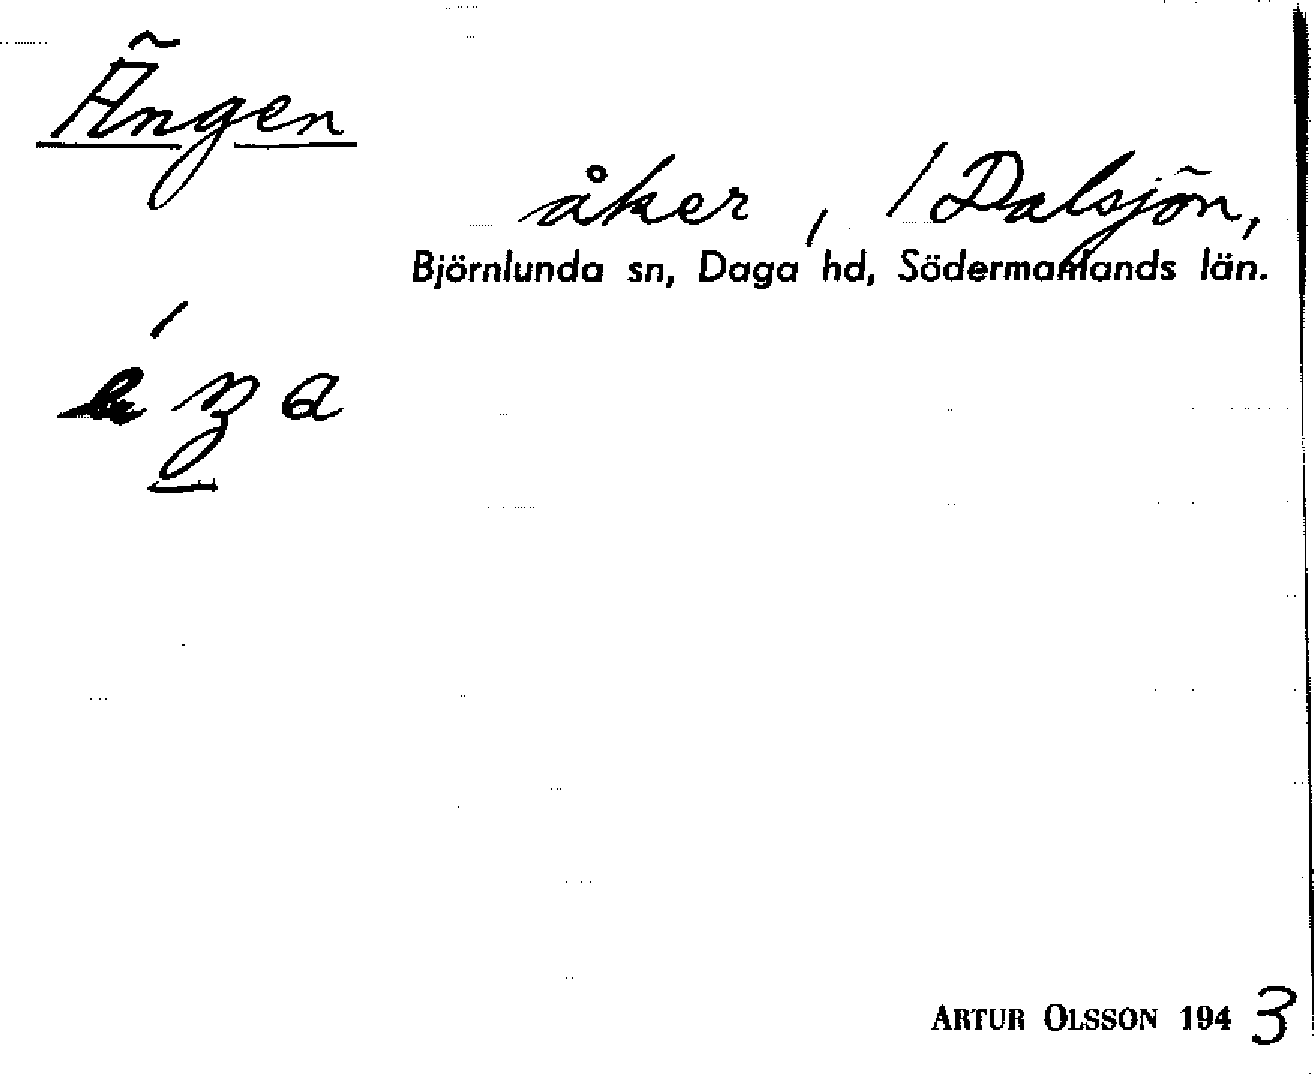 Ängen
åker, /Dalsjön,
Björnlunda sn, Daga hd, Södermanlands län.
ARTUR OLSSON 1943